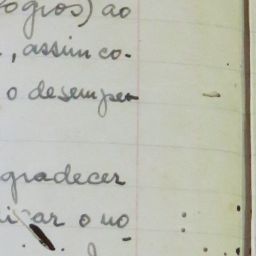 ogios) ao
, assim co-
o desempe-
gradecer
icar o no